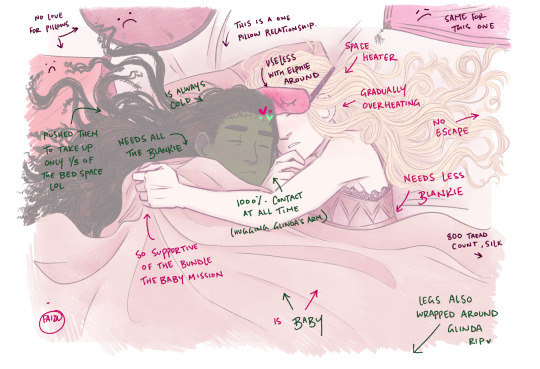 NO LOVE
FOR PILLOWS
THIS IS A ONE
PILLOW RELATIONSHIP.
SAME FOR
THIS ONE
USELESS
WITH ELPHIE
AROUND
SPACE
HEATER
IS ALWAYS
COLD
GRADUALLY
OVERHEATING
NO
ESCAPE
PUSHED THEM
TO TAKE UP
ONLY 1/3 OF
THE BED SPACE
LOL
NEEDS ALL
THE BLANKIE
NEEDS LESS
BLANKIE
1000% CONTACT
AT ALL TIME
(HUGGING GLINDA'S ARM)
SO SUPPORTIVE
OF THE BUNDLE
THE BABY MISSION
800 TREAD
COUNT, SILK
IS BABY
LEGS ALSO
WRAPPED AROUND
GLINDA
RIP